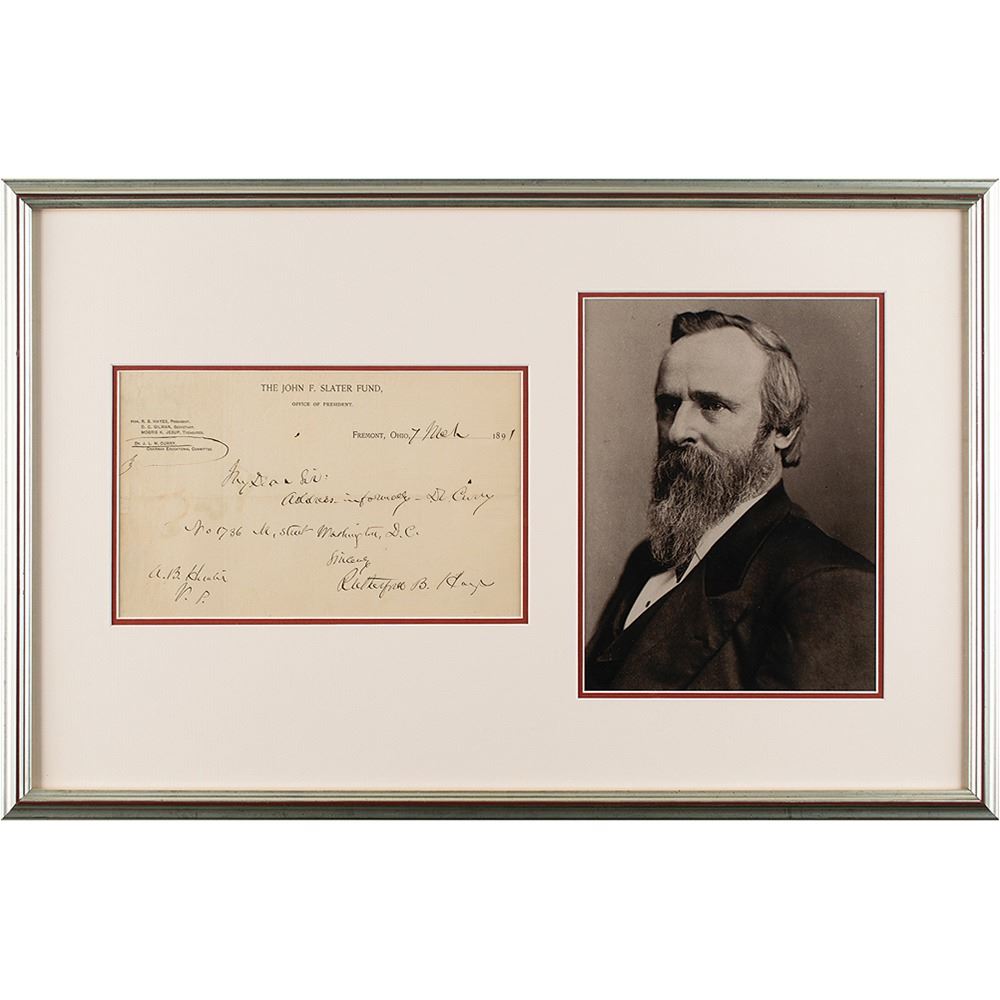 THE JOHN F. SLATER FUND,
OFFICE OF PRESIDENT.
HON. R. B. HAYES, PRESIDENT.
D. C. GILMAN, SECRETARY.
MORRIS K. JESUP, TREASURER.
DR. J. L. M. CURRY,
CHAIRMAN EDUCATIONAL COMMITTEE.
FREMONT, OHIO, 7 Mch 1891
My Dear Sir:
Address informally - Dr Curry
No 1736 M, street Washington, D.C.
Sincerely
Rutherford B. Hayes
A. B. Hunter
V. P.